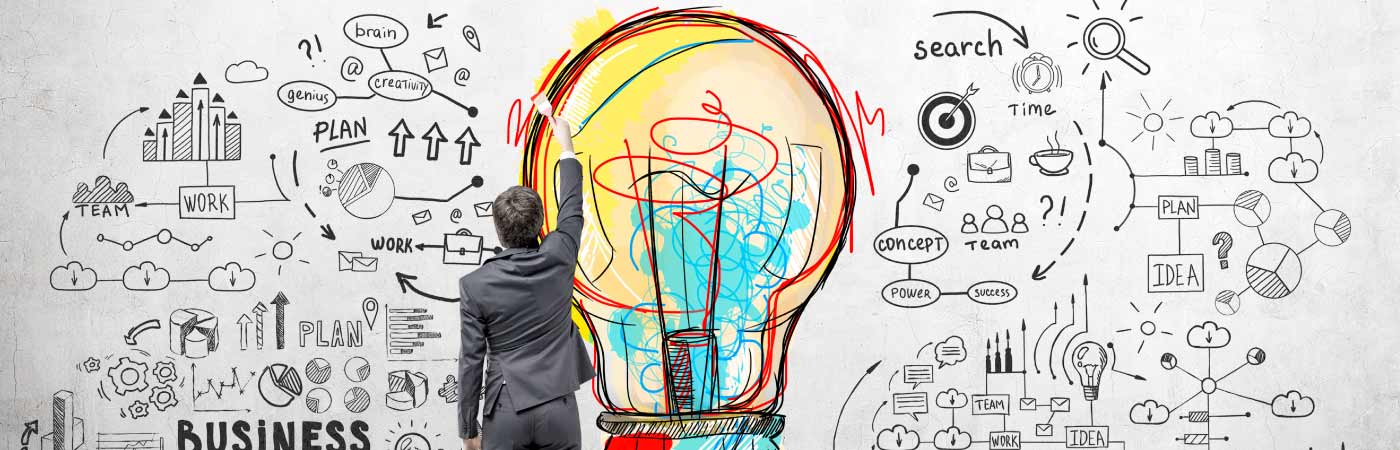 brain
?!
@
creativity
@
genius
PLAN
TEAM
WORK
@
WORK
PLAN
BUSINESS
search
Time
@
?!
Team
CONCEPT
POWER
success
PLAN
?
IDEA
TEAM
WORK
IDEA